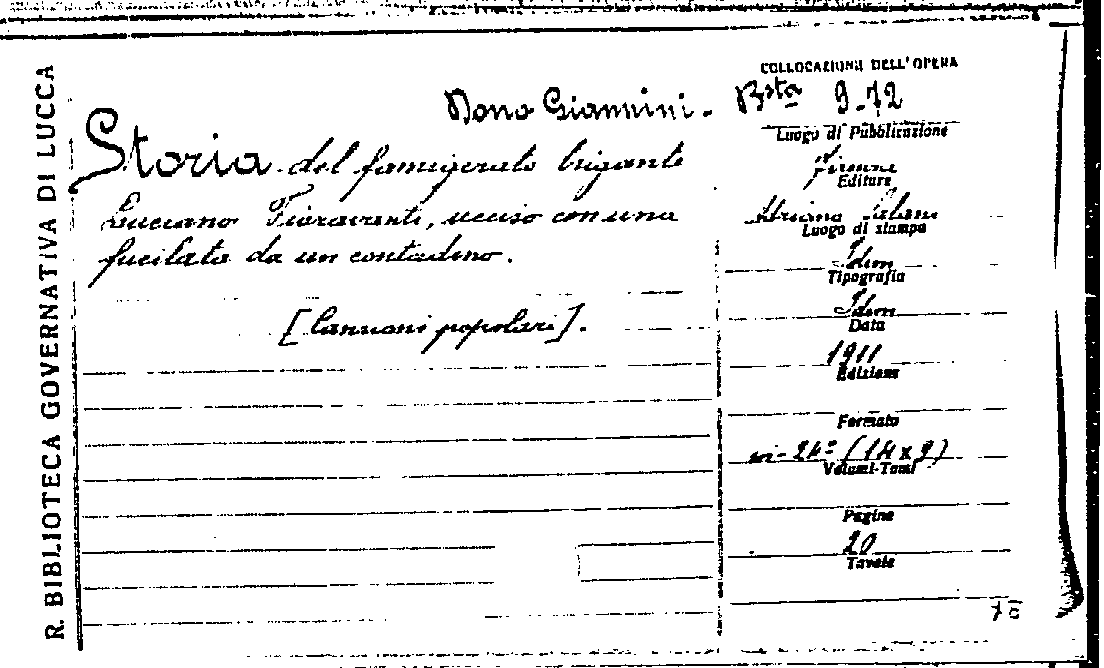 R. BIBLIOTECA GOVERNATIVA DI LUCCA
Dono Giannini.
Storia del famigerato brigante
Luciano Fioravanti, ucciso con una
fucilata da un contadino.
[Canzoni popolari].
COLLOCAZIONE DELL'OPERA
Bsta 9-72
Luogo di Pubblicazione
Firenze
Editore
Adriano Salani
Luogo di stampa
Idem
Tipografia
Idem
Data
1911
Edizione
Formato
in-24º (14x9)
Volumi-Tomi
Pagine
20
Tavole